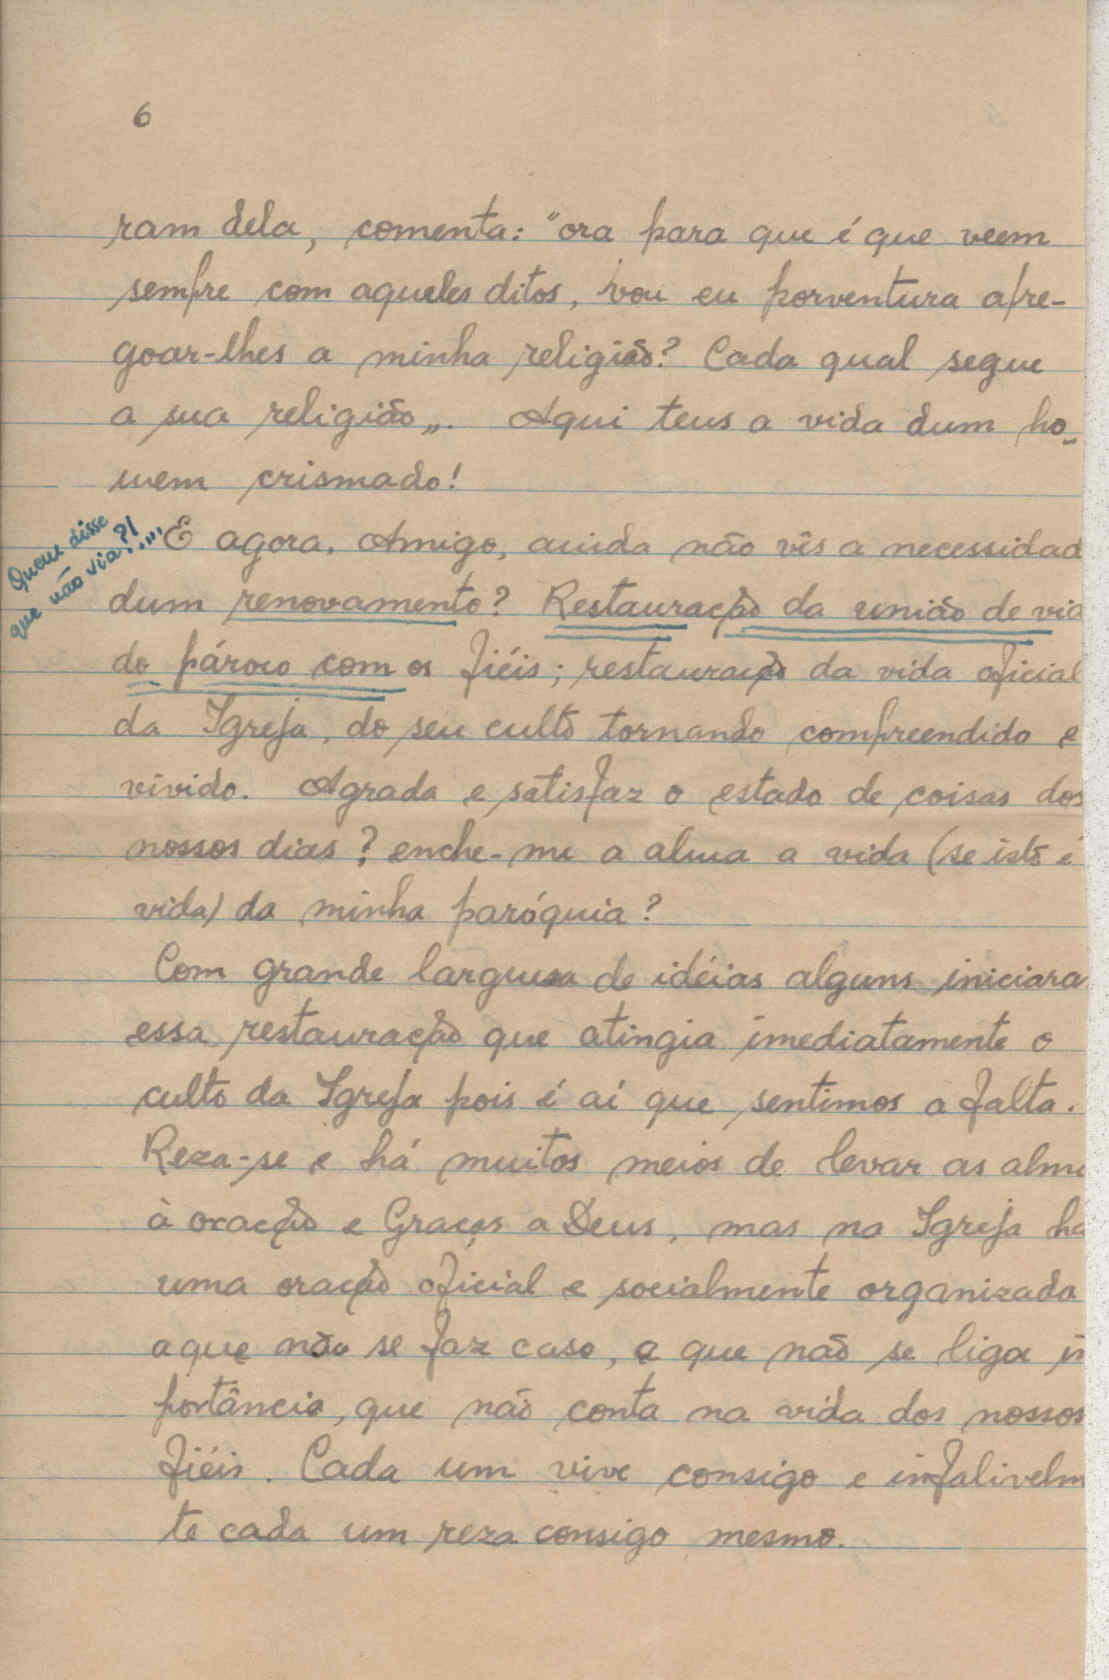 6
ram dela, comenta: "ora para que é que veem
sempre com aqueles ditos, vou eu porventura apre-
goar-lhes a minha religião? Cada qual segue
a sua religião„. Aqui tens a vida dum ho-
mem crismado!
Quem disse
que não via?!....
E agora, Amigo, ainda não vês a necessidad
dum renovamento? Restauração da união de vid
do pároco com os fiéis; restauração da vida oficial
da Igreja, do seu culto tornando compreendido e
vivido. Agrada e satisfaz o estado de coisas dos
nossos dias? enche-me a alma a vida (se isto é
vida) da minha paróquia?
Com grande larguesa de idéias alguns iniciara
essa restauração que atingia imediatamente o
culto da Igreja pois é aí que sentimos a falta.
Reza-se e há muitos meios de levar as alma
à oração e Graças a Deus, mas na Igreja há
uma oração oficial e socialmente organizada
a que não se faz caso, a que não se liga im
portância, que não conta na vida dos nossos
fiéis. Cada um vive consigo e infalivelm
te cada um reza consigo mesmo.